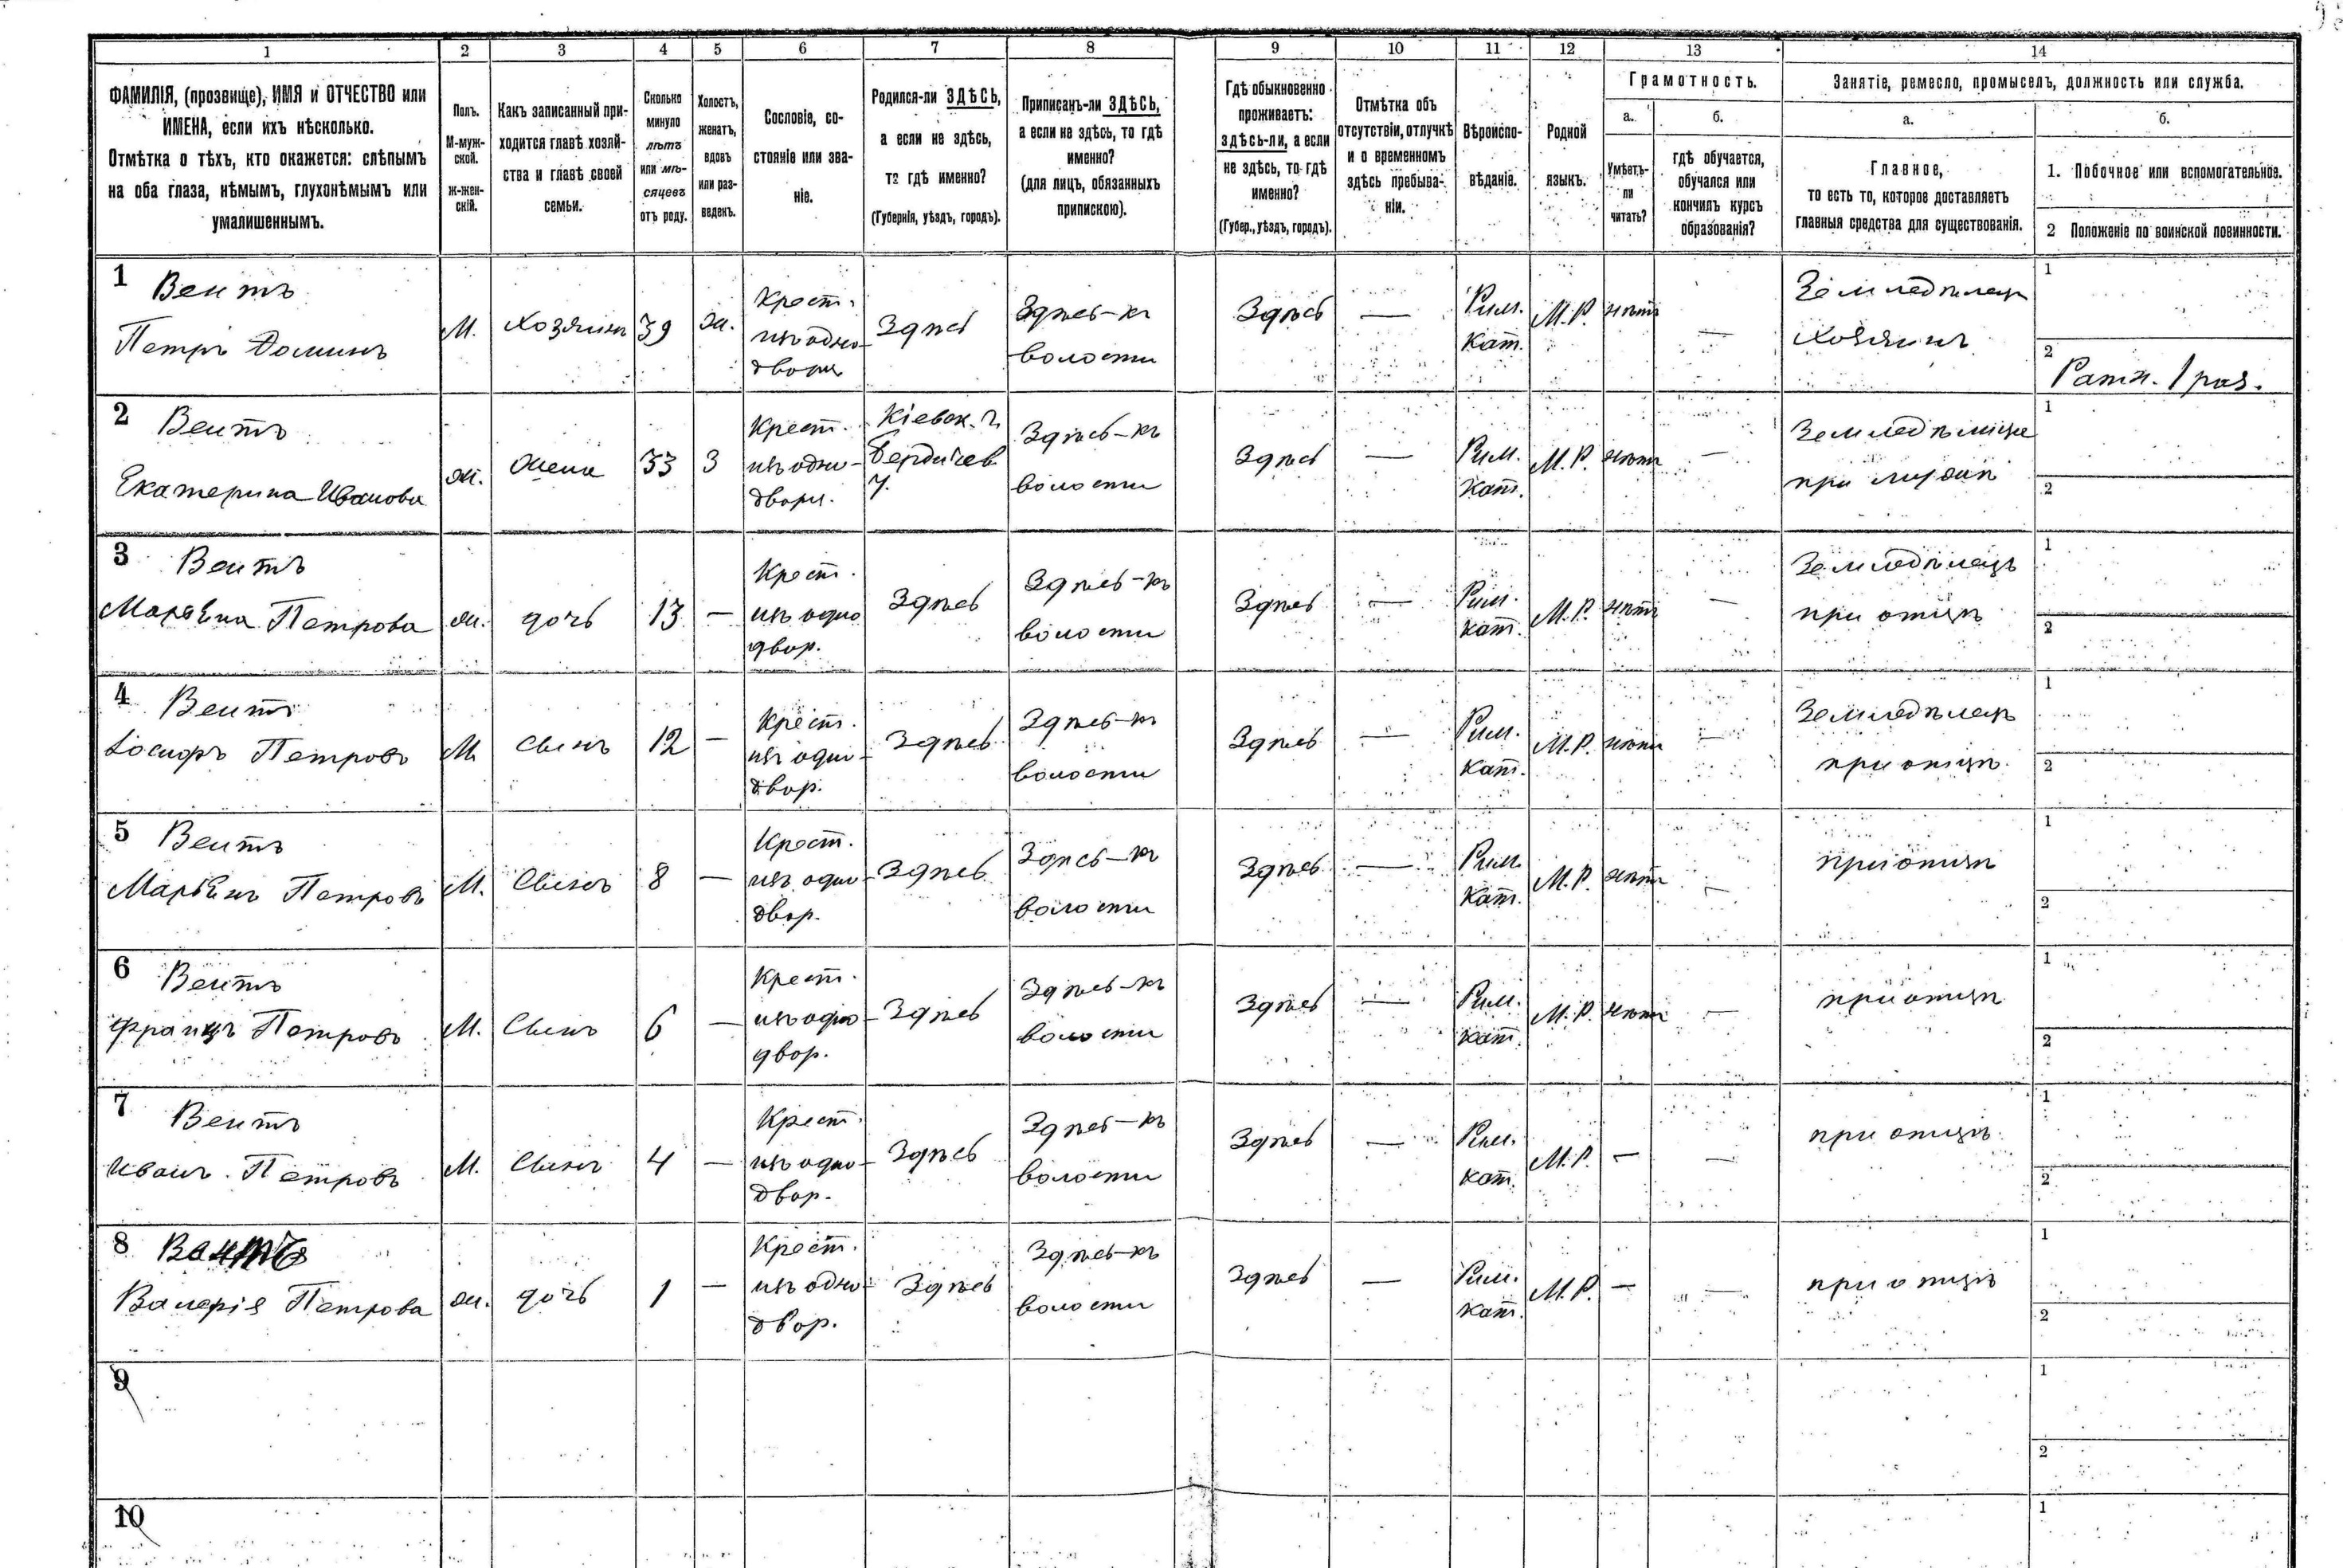 1 2 3 4 5 6 7 8 9 10 11 12 13 14
ФАМИЛІЯ, (прозвище), ИМЯ и ОТЧЕСТВО или
ИМЕНА, если ихъ нѣсколько.
Отмѣтка о тѣхъ, кто окажется: слѣпымъ
на оба глаза, нѣмымъ, глухонѣмымъ или
умалишеннымъ.
Полъ.
М-муж-
ской.
ж-жен-
скій.
Какъ записанный при-
ходится главѣ хозяй-
ства и главѣ своей
семьи.
Сколько
минуло
лѣтъ
или мѣ-
сяцевъ
отъ роду.
Холостъ,
женатъ,
вдовъ
или раз-
веденъ.
Сословіе, со-
стояніе или зва-
ніе.
Родился-ли ЗДѢСЬ,
а если не здѣсь,
то гдѣ именно?
(Губернія, уѣздъ, городъ).
Приписанъ-ли ЗДѢСЬ,
а если не здѣсь, то гдѣ
именно?
(для лицъ, обязанныхъ
припискою).
Гдѣ обыкновенно
проживаетъ:
здѣсь-ли, а если
не здѣсь, то гдѣ
именно?
(Губер., уѣздъ, городъ).
Отмѣтка объ
отсутствіи, отлучкѣ
и о временномъ
здѣсь пребыва-
ніи.
Вѣроиспо-
вѣданіе.
Родной
языкъ.
Грамотность.
а.
Умѣетъ-
ли
читать?
б.
гдѣ обучается,
обучался или
кончилъ курсъ
образованія?
Занятіе, ремесло, промыселъ, должность или служба.
а.
Главное,
то есть то, которое доставляетъ
главныя средства для существованія.
б.
1. Побочное или вспомогательное.
2 Положеніе по воинской повинности.
1 Вентъ
Петръ Доминъ
М.
Хозяинъ
39
ж.
Крест.
изъ одно-
дворц
Здѣсь
Здѣсь-къ
волости
Здѣсь
—
Рим.
Кат.
М.Р.
нѣтъ
—
Земледѣлецъ
Хозяинъ
1
2
Ратн. 1 раз.
2 Вентъ
Екатерина Иванова
ж.
Жена
33
З
Крест.
изъ одно-
дворц.
Кіевск. г.
Бердичев.
у.
Здѣсь-къ
волости
Здѣсь
—
Рим.
Кат.
М.Р.
нѣтъ
—
Земледѣлица
при мужѣ
1
2
3 Вентъ
Петрова
ж.
дочь
13
—
Крест.
изъ одно
двор.
Здѣсь
Здѣсь-къ
волости
Здѣсь
—
Рим.
Кат.
М.Р.
нѣтъ
—
Земледѣлецъ
при отцѣ
1
2
4 Вентъ
Іосифъ Петровъ
М
Сынъ
12
—
Крест.
изъ одно-
двор.
Здѣсь
Здѣсь-къ
волости
Здѣсь
—
Рим.
Кат.
М.Р.
нѣтъ
—
Земледѣлецъ
при отцѣ
1
2
5 Вентъ
Петровъ
М.
Сынъ
8
—
Крест.
изъ одно-
двор.
Здѣсь
Здѣсь-къ
волости
Здѣсь
—
Рим.
Кат.
М.Р.
нѣтъ
—
при отцѣ
1
2
6 Вентъ
Францъ Петровъ
М.
Сынъ
6
—
Крест.
изъ одно-
двор.
Здѣсь
Здѣсь-къ
волости
Здѣсь
—
Рим.
кат.
М.Р.
нѣтъ
—
при отцѣ
1
2
7 Вентъ
Иванъ Петровъ
М.
Сынъ
4
—
Крест.
изъ одно-
двор.
Здѣсь
Здѣсь-къ
волости
Здѣсь
—
Рим.
кат.
М.Р.
—
—
при отцѣ
1
2
8 Вентъ
Валерія Петрова
ж.
дочь
1
—
Крест.
изъ одно-
двор.
Здѣсь
Здѣсь-къ
волости
Здѣсь
—
Рим.
кат.
М.Р.
—
—
при отцѣ
1
2
9
1
2
10
1